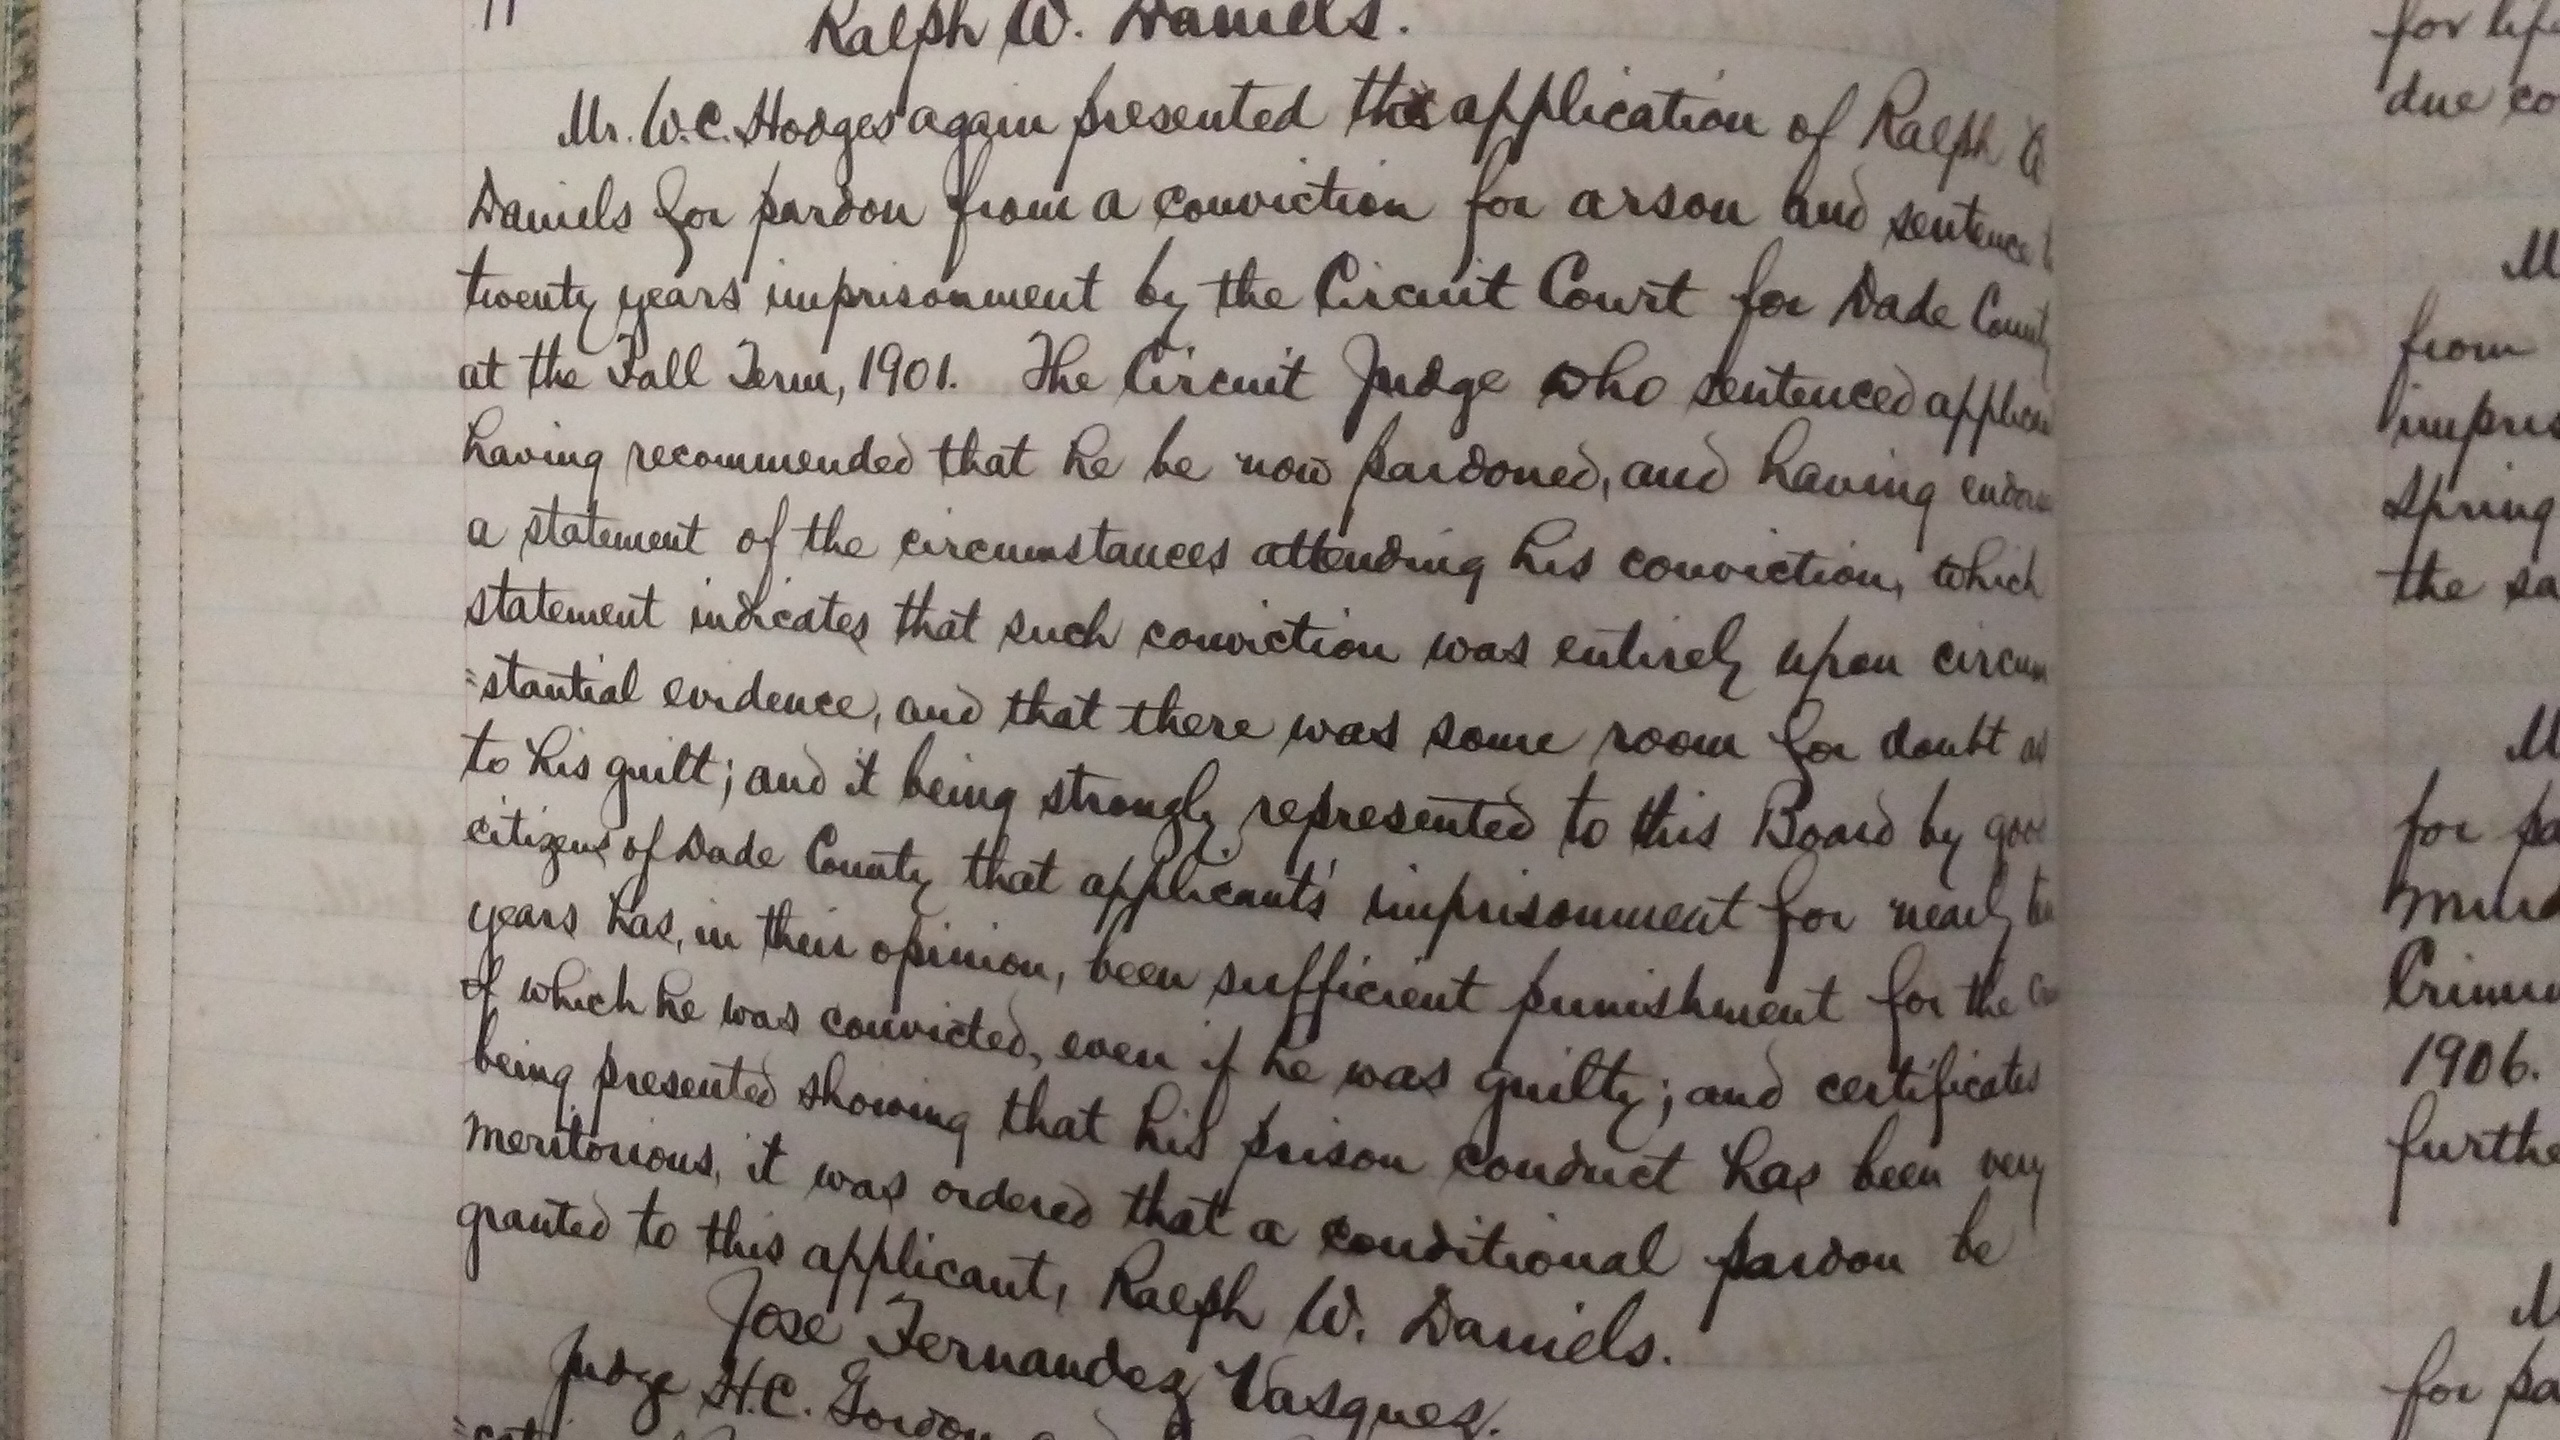 Ralph W. Daniels.
Mr. W.C. Hodges again presented the application of Ralph W
Daniels for pardon from a conviction for arson and sentence
twenty years imprisonment by the Circuit Court for Dade County
at the Fall Term, 1901. The Circuit Judge who sentenced
having recommended that he be now pardoned, and having
a statement of the circumstances attending his conviction, which
statement indicates that such conviction was entirely upon circum
"stantial evidence, and that there was some room for doubt as
to his guilt; and it being strongly represented to this Board by good
citizens of Dade County that applicants' imprisonment for nearly
years has, in their opinion, been sufficient punishment for the
of which he was convicted, even if he was guilty; and certificates
being presented showing that his prison conduct has been very
meritorious, it was ordered that a conditional pardon be
granted to this applicant, Ralph W. Daniels.
Jose Fernandez Vasques.
Judge H.C. Gordon
for life
due co
M
from
impris
spring
the sa
M
for pa
Crimin
1906.
furthe
M
for pa